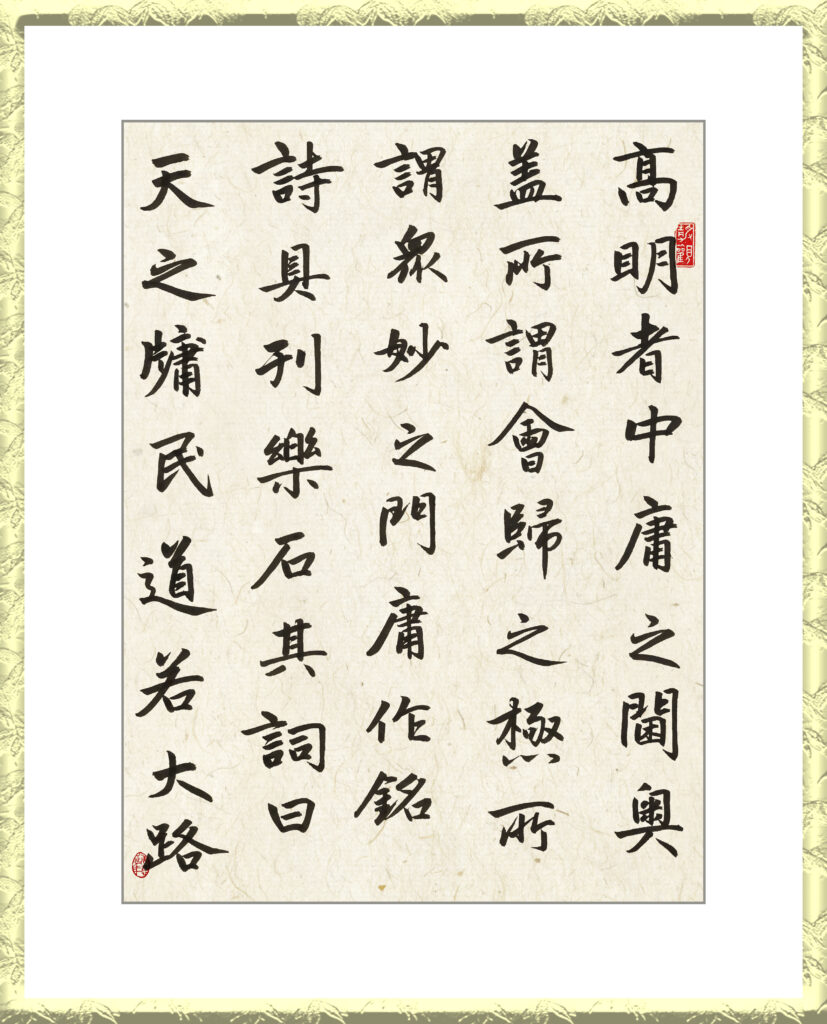 髙明者中庸之閫奥
盖所謂會歸之極所
謂眾妙之門庸作銘
詩具刊樂石其詞曰
天之牖民道若大路